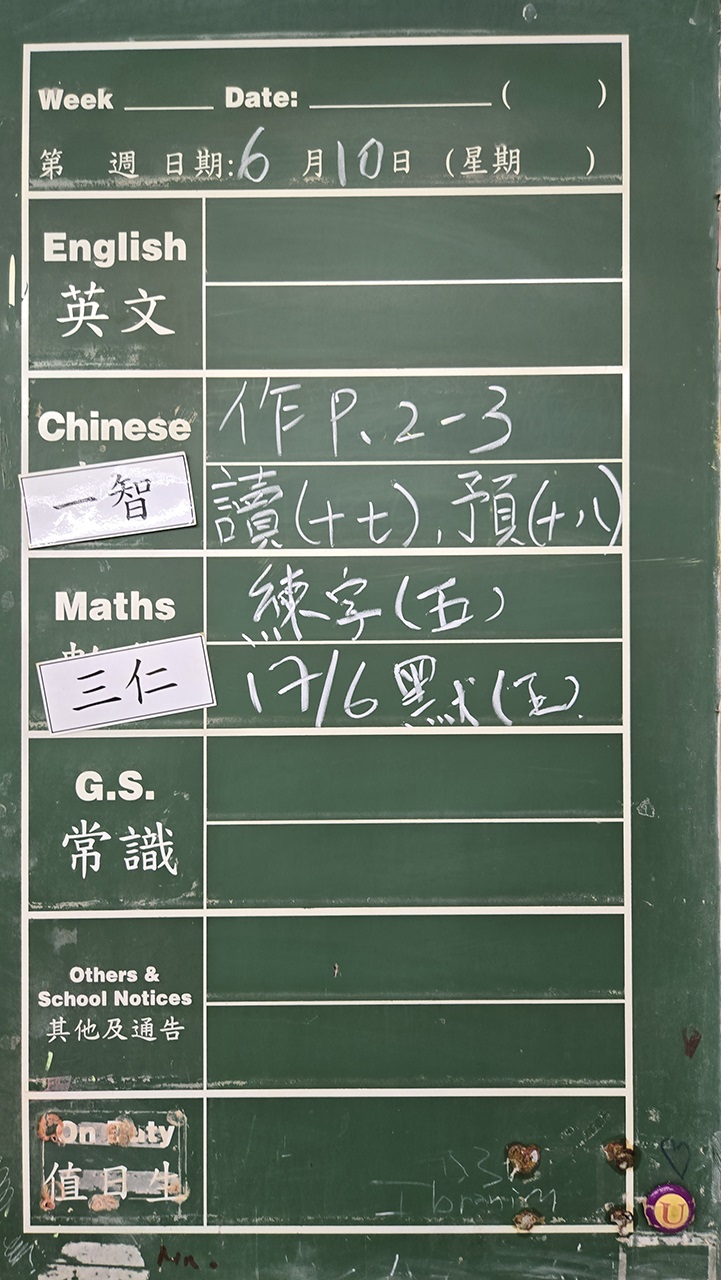 Week Date: ( )
第 週 日期:6月10日 (星期 )
English
英文
Chinese
作 P. 2-3
一智
讀(十七),預(十八)
Maths
練字(五)
三仁
17/6 默(五)
G.S.
常識
Others &
School Notices
其他及通告
On Duty
值日生
U